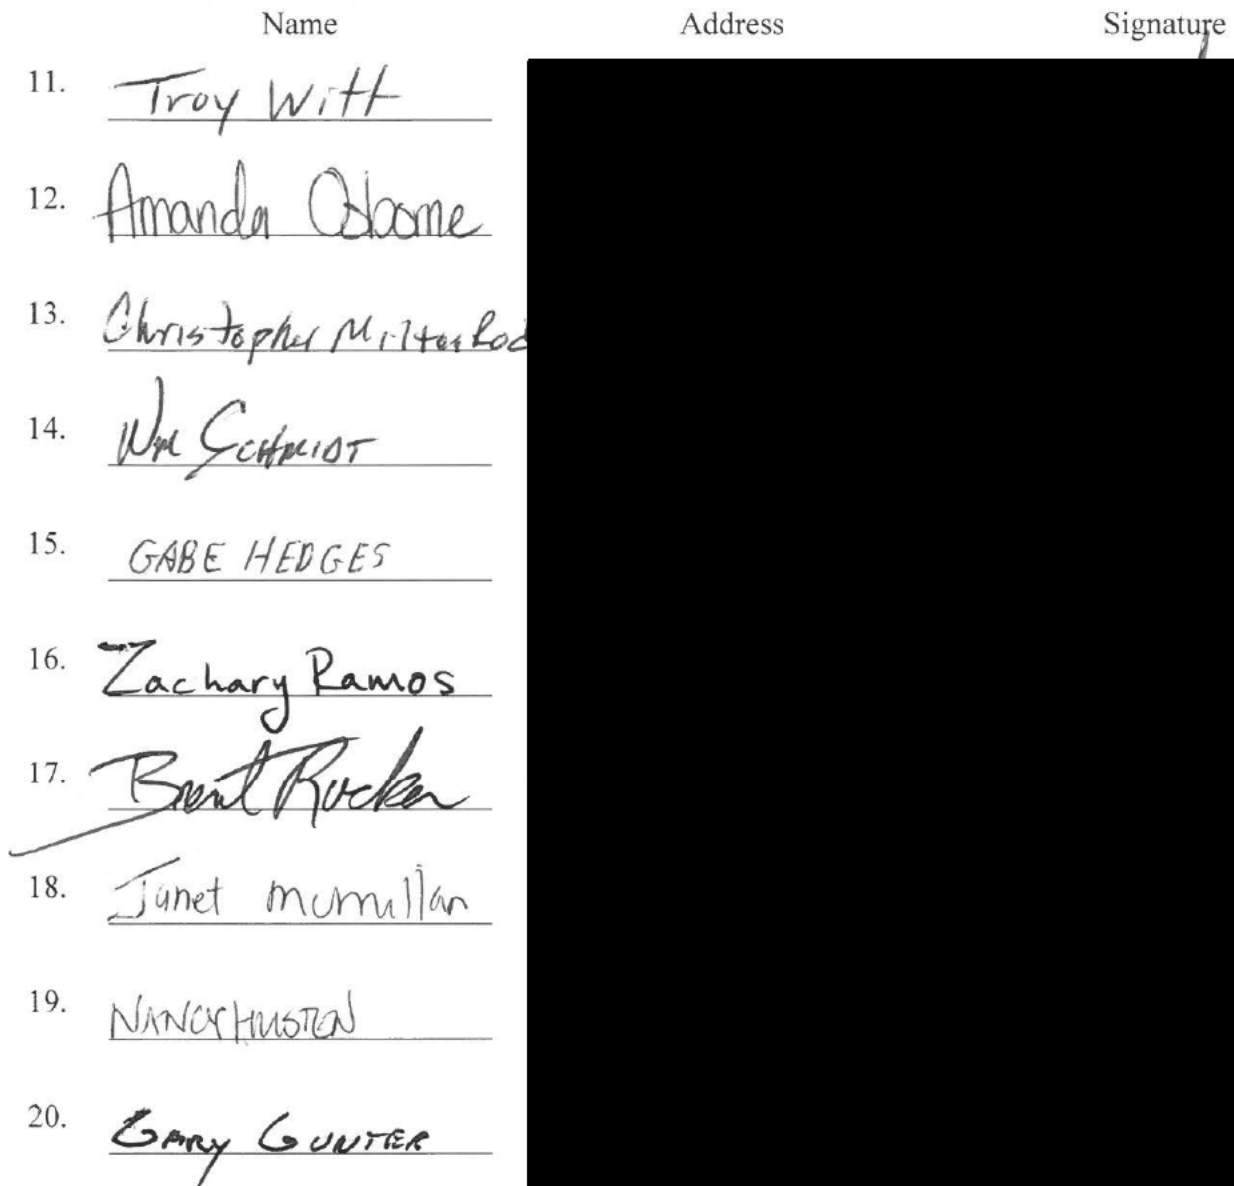 Name Address Signature
11. Troy Witt
12. Amanda Osborne
13. Christopher Milton Rod
14. Wm SCHMIDT
15. GABE HEDGES
16. Zachary Ramos
17. Brent Rucker
18. Janet mcmillan
19. NANCY HUSTON
20. GARY GUNTER